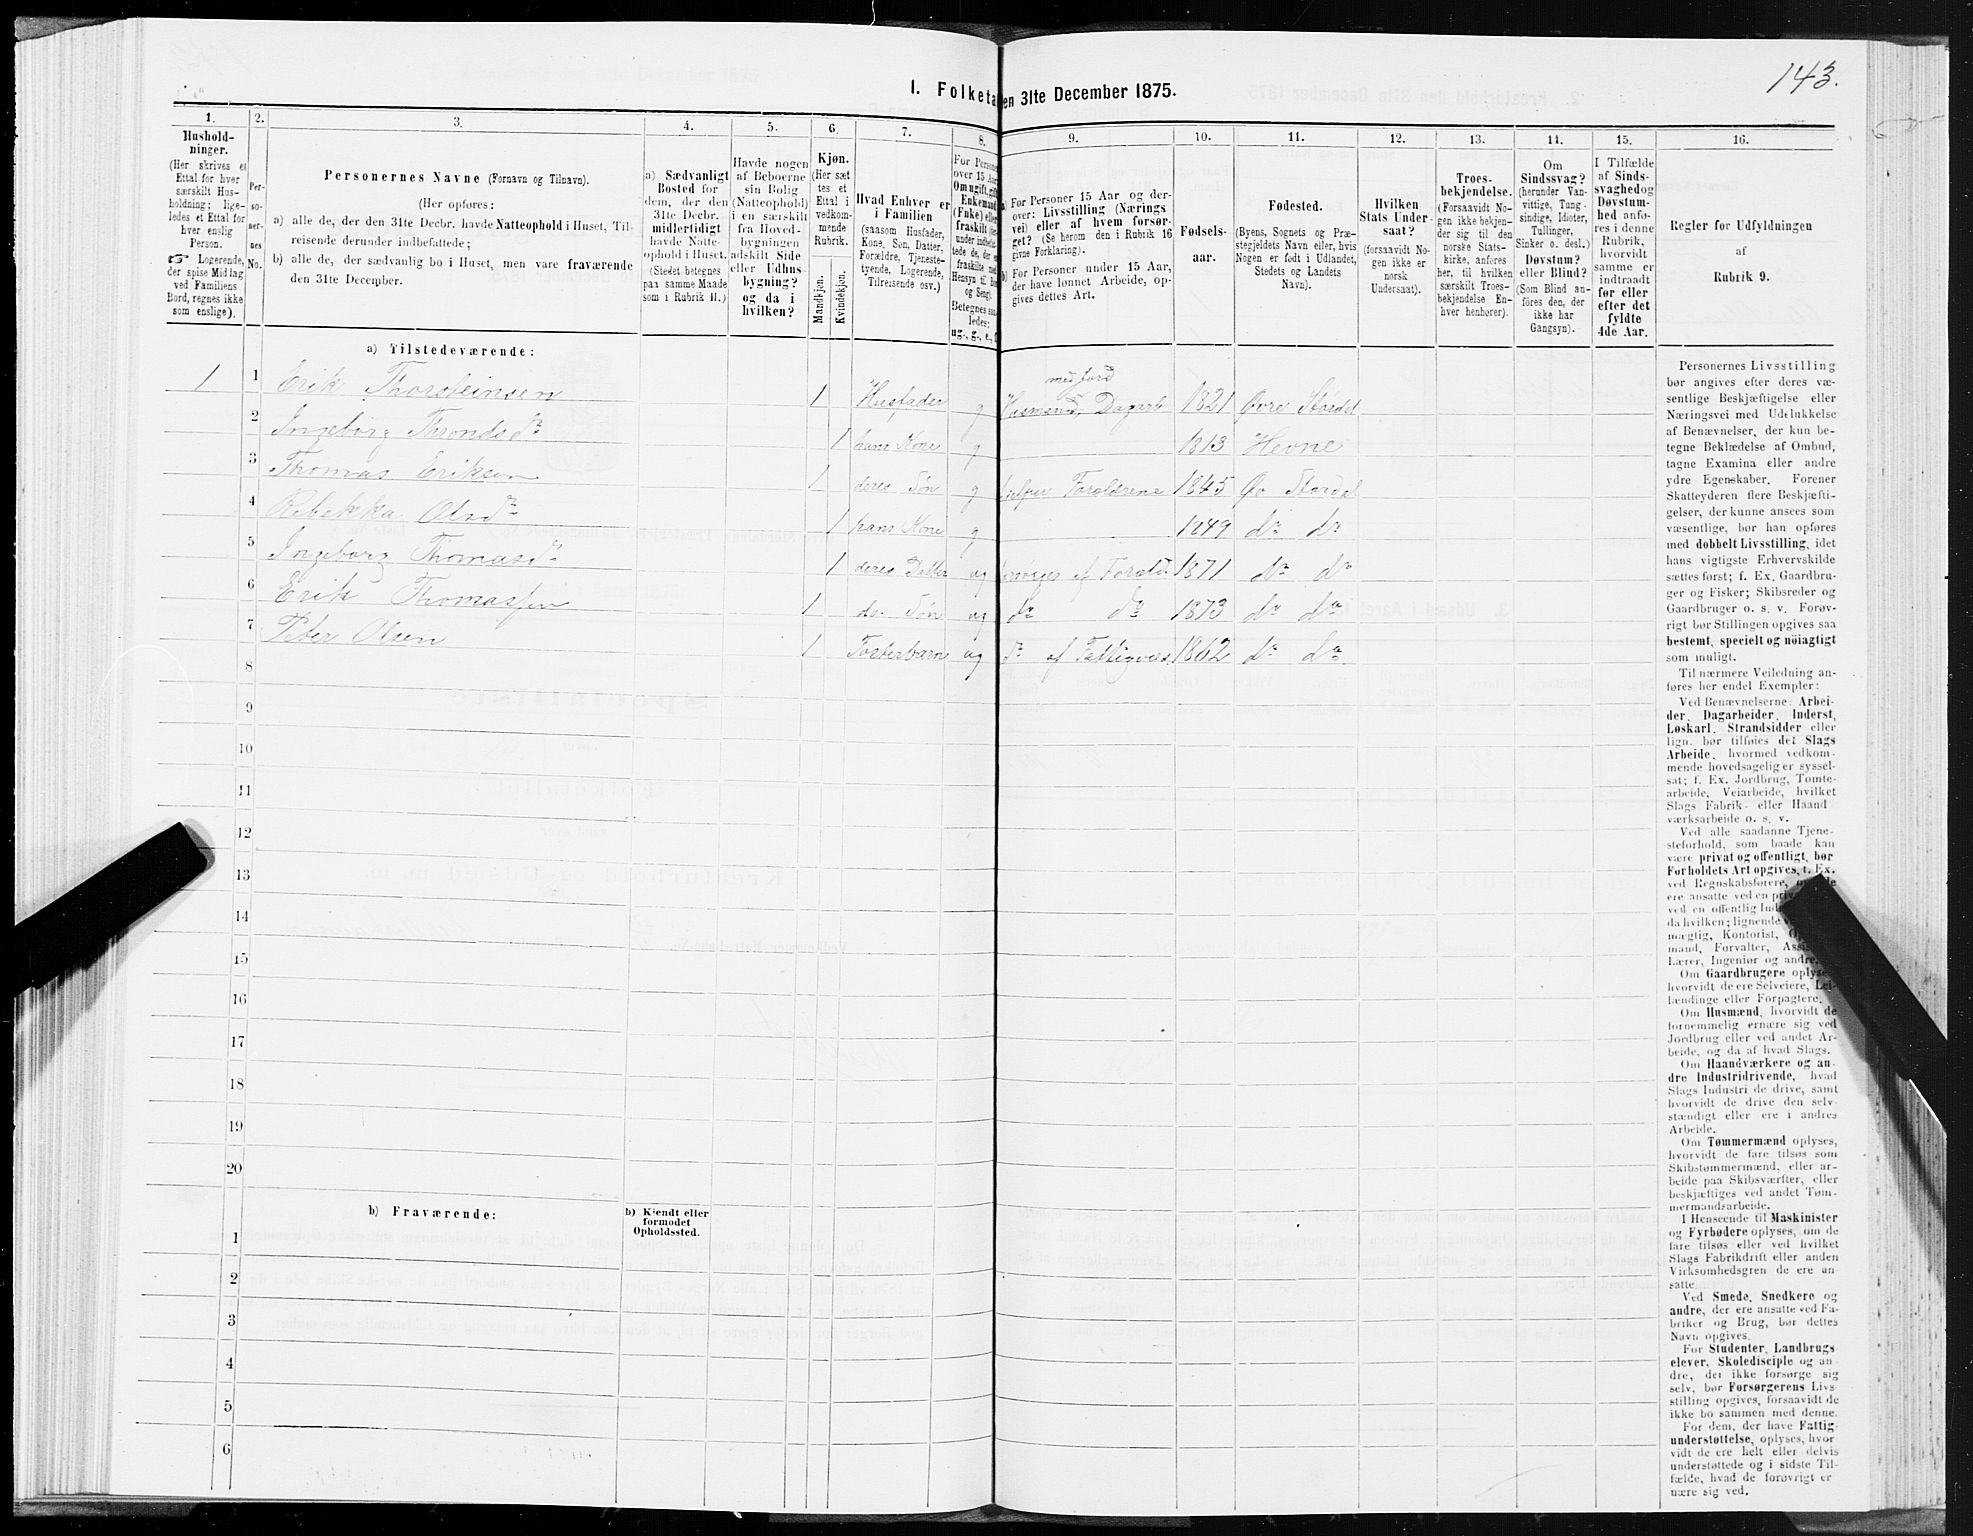 143.
I. Folketa en 31te December 1875.
1. 2. 3. 4. 5. 6. 7. 8. 9. 10. 11. 12. 13. 14. 15. 16.
Hushold-
ninger.
(Her skrives et
Ettal for hver
særskilt Hus-
holdning; lige-
ledes et Ettal for
hver enslig
Person.
☞ Logerende,
der spise Middag
ved Familiens
Bord, regnes ikke
som enslige).
Per-
so-
ner-
nes
No.
Personernes Navne (Fornavn og Tilnavn).
(Her opføres:
a) alle de, der den 31te Decbr. havde Natteophold i Huset, Til-
reisende derunder indbefattede;
b) alle de, der sædvanlig bo i Huset, men vare fraværende
den 31te December.
a) Sædvanligt
Bosted for
dem, der den
31te Decbr.
midlertidigt
havde Natte-
ophold i Huset.
(Stedet betegnes
paa samme Maade
som i Rubrik 11.)
Havde nogen
af Beboerne
sin Bolig
(Natteophold)
i en særskilt
fra Hoved-
bygningen
adskilt Side
eller Udhus-
bygning?
og da i
hvilken?
Kjøn.
(Her sæt-
tes et
Ettal i
vedkom-
mende
Rubrik.
Mandkjøn.
Kvindekjøn.
Hvad Enhver er
i Familien
(saasom Husfader,
Kone, Søn, Datter,
Forældre, Tjeneste-
tyende, Logerende,
Tilreisende osv.)
For Persone
over 15 Aar
Om ugift, gift
Enkemand
(Enke) elle
fraskilt
under indbefat-
tede de, der
fraskilte med
Hensyn til Bo
og Seng).
Betegnes saa-
ledes:
ug., g., e., f
a) For Personer 15 Aar og der-
over: Livsstilling (Nærings
vei) eller af hvem forsør-
get? (Se herom den i Rubrik 16
givne Forklaring).
b) For Personer under 15 Aar,
der have lønnet Arbeide, op-
gives dettes Art.
Fødsels-
aar.
Fødested.
(Byens, Sognets og Præ-
stegjeldets Navn eller, hvis
Nogen er født i Udlandet,
Stedets og Landets
Navn).
Hvilken
Stats Under-
saat?
(forsaavidt No-
gen ikke er
norsk
Undersaat).
Troes-
bekjendelse.
(Forsaavidt No-
gen ikke bekjen-
der sig til den
norske Stats-
kirke, anføres
her, til hvilken
særskilt Troes-
bekjendelse En-
hver henhører).
Om
Sindssvag?
(herunder Van-
vittige, Tung-
sindige, Idioter,
Tullinger,
Sinker o. desl.)
Døvstum?
eller Blind?
(Som Blind an-
føres den, der
ikke har
Gangsyn).
I Tilfælde
af Sinds-
svaghed og
Døvstum-
hed anfø-
res i denne
Rubrik,
hvorvidt
samme er
indtraadt
før eller
efter det
fyldte
4de Aar.
Regler for Udfyldningen
af
Rubrik 9.
a) Tilstedeværende:
med Jord
1 1 Erik Thorsteinsen 1 Husfader g Husmand, Dagarb 1821 Øvre Stordal
2 Ingeborg Throndsdr 1 hans Kone g 1813 Hevne
3 Thomas Eriksen 1 deres Søn g hjelper Forældrene 1845 Øv Stordal
4 Rebekka Olsdr 1 hans Kone g 1849 do do
5 Ingeborg Thomasdr 1 deres Datter ug forsørges af Foræld. 1871 do do
6 Erik Thomassen 1 ds. Søn ug do do 1873 do do
7 Peter Olsen 1 Fosterbarn ug do af Fattigvæs. 1862 do do
8
9
10
11
12
13
14
15
16
17
18
19
20
b) Fraværende:
b) Kjendt eller
formodet
Opholdssted.
1
2
3
4
5
6
Personernes Livsstilling
bør angives efter deres væ-
sentlige Beskjæftigelse eller
Næringsvei med Udelukkelse
af Benævnelser, der kun be-
tegne Beklædelse af Ombud,
tagne Examina eller andre
ydre Egenskaber. Forener
Skatteyderen flere Beskjæfti-
gelser, der kunne ansees som
væsentlige, bør han opføres
med dobbelt Livsstilling, idet
hans vigtigste Erhvervskilde
sættes først; f. Ex. Gaardbru-
ger og Fisker; Skibsreder og
Gaardbruger o. s. v. Forøv-
rigt bør Stillingen opgives saa
bestemt, specielt og nöiagtigt
som muligt.
Til nærmere Veiledning an-
føres her endel Exempler:
Ved Benævnelserne: Arbei-
der, Dagarbeider, Inderst,
Løskarl, Strandsidder eller
lign. bør tilføies det Slags
Arbeide, hvormed vedkom-
mende hovedsagelig er syssel-
sat; f. Ex. Jordbrug, Tomte-
arbeide, Veiarbeide, hvilket
Slags Fabrik- eller Haand
værksarbeide o. s. v.
Ved alle saadanne Tjene-
steforhold, som baade kan
være privat og offentligt, bør
Forholdets Art opgives, t. Ex.
ved Regnskabsførere,
ere ansatte ved en pri
ved en offentlig Ind
da hvilken; lignende
mægtig, Kontorist, Op
mand, Forvalter, Assis
Lærer, Ingeniør og andre.
Om Gaardbrugere oplyse
hvorvidt de ere Selveiere, Lei-
lændinge eller Forpagtere.
Om Husmænd, hvorvidt de
fornemmelig ernære sig ved
Jordbrug eller ved andet Ar-
beide, og da af hvad Slags.
Om Haandværkere og an-
dre Industridrivende, hvad
Slags Industri de drive, samt
hvorvidt de drive den selv-
stændigt eller ere i andres
Arbeide.
Om Tømmermænd oplyses,
hvorvidt de fare tilsøs som
Skibstømmermænd, eller ar-
beide paa Skibsværfter, eller
beskjæftiges ved andet Tøm-
mermandsarbeide.
I Henseende til Maskinister
og Fyrbødere oplyses, om de
fare tilsøs eller ved hvilket
Slags Fabrikdrift eller anden
Virksomhedsgren de ere an-
satte.
Ved Smede, Snedkere og
andre, der ere ansatte ved Fa-
briker og Brug, bør dettes
Navn opgives.
For Studenter, Landbrugs-
elever, Skoledisciple og an-
dre, der ikke forsørge sig
selv, bør Forsørgerens Livs-
stilling opgives, forsaavidt de
ikke bo sammen med denne.
For dem, der have Fattig-
understøttelse, oplyses, hvor-
vidt de ere helt eller delvis
understøttede og i sidste Til-
fælde, hvad de forøvrigt er-
nære sig ved.